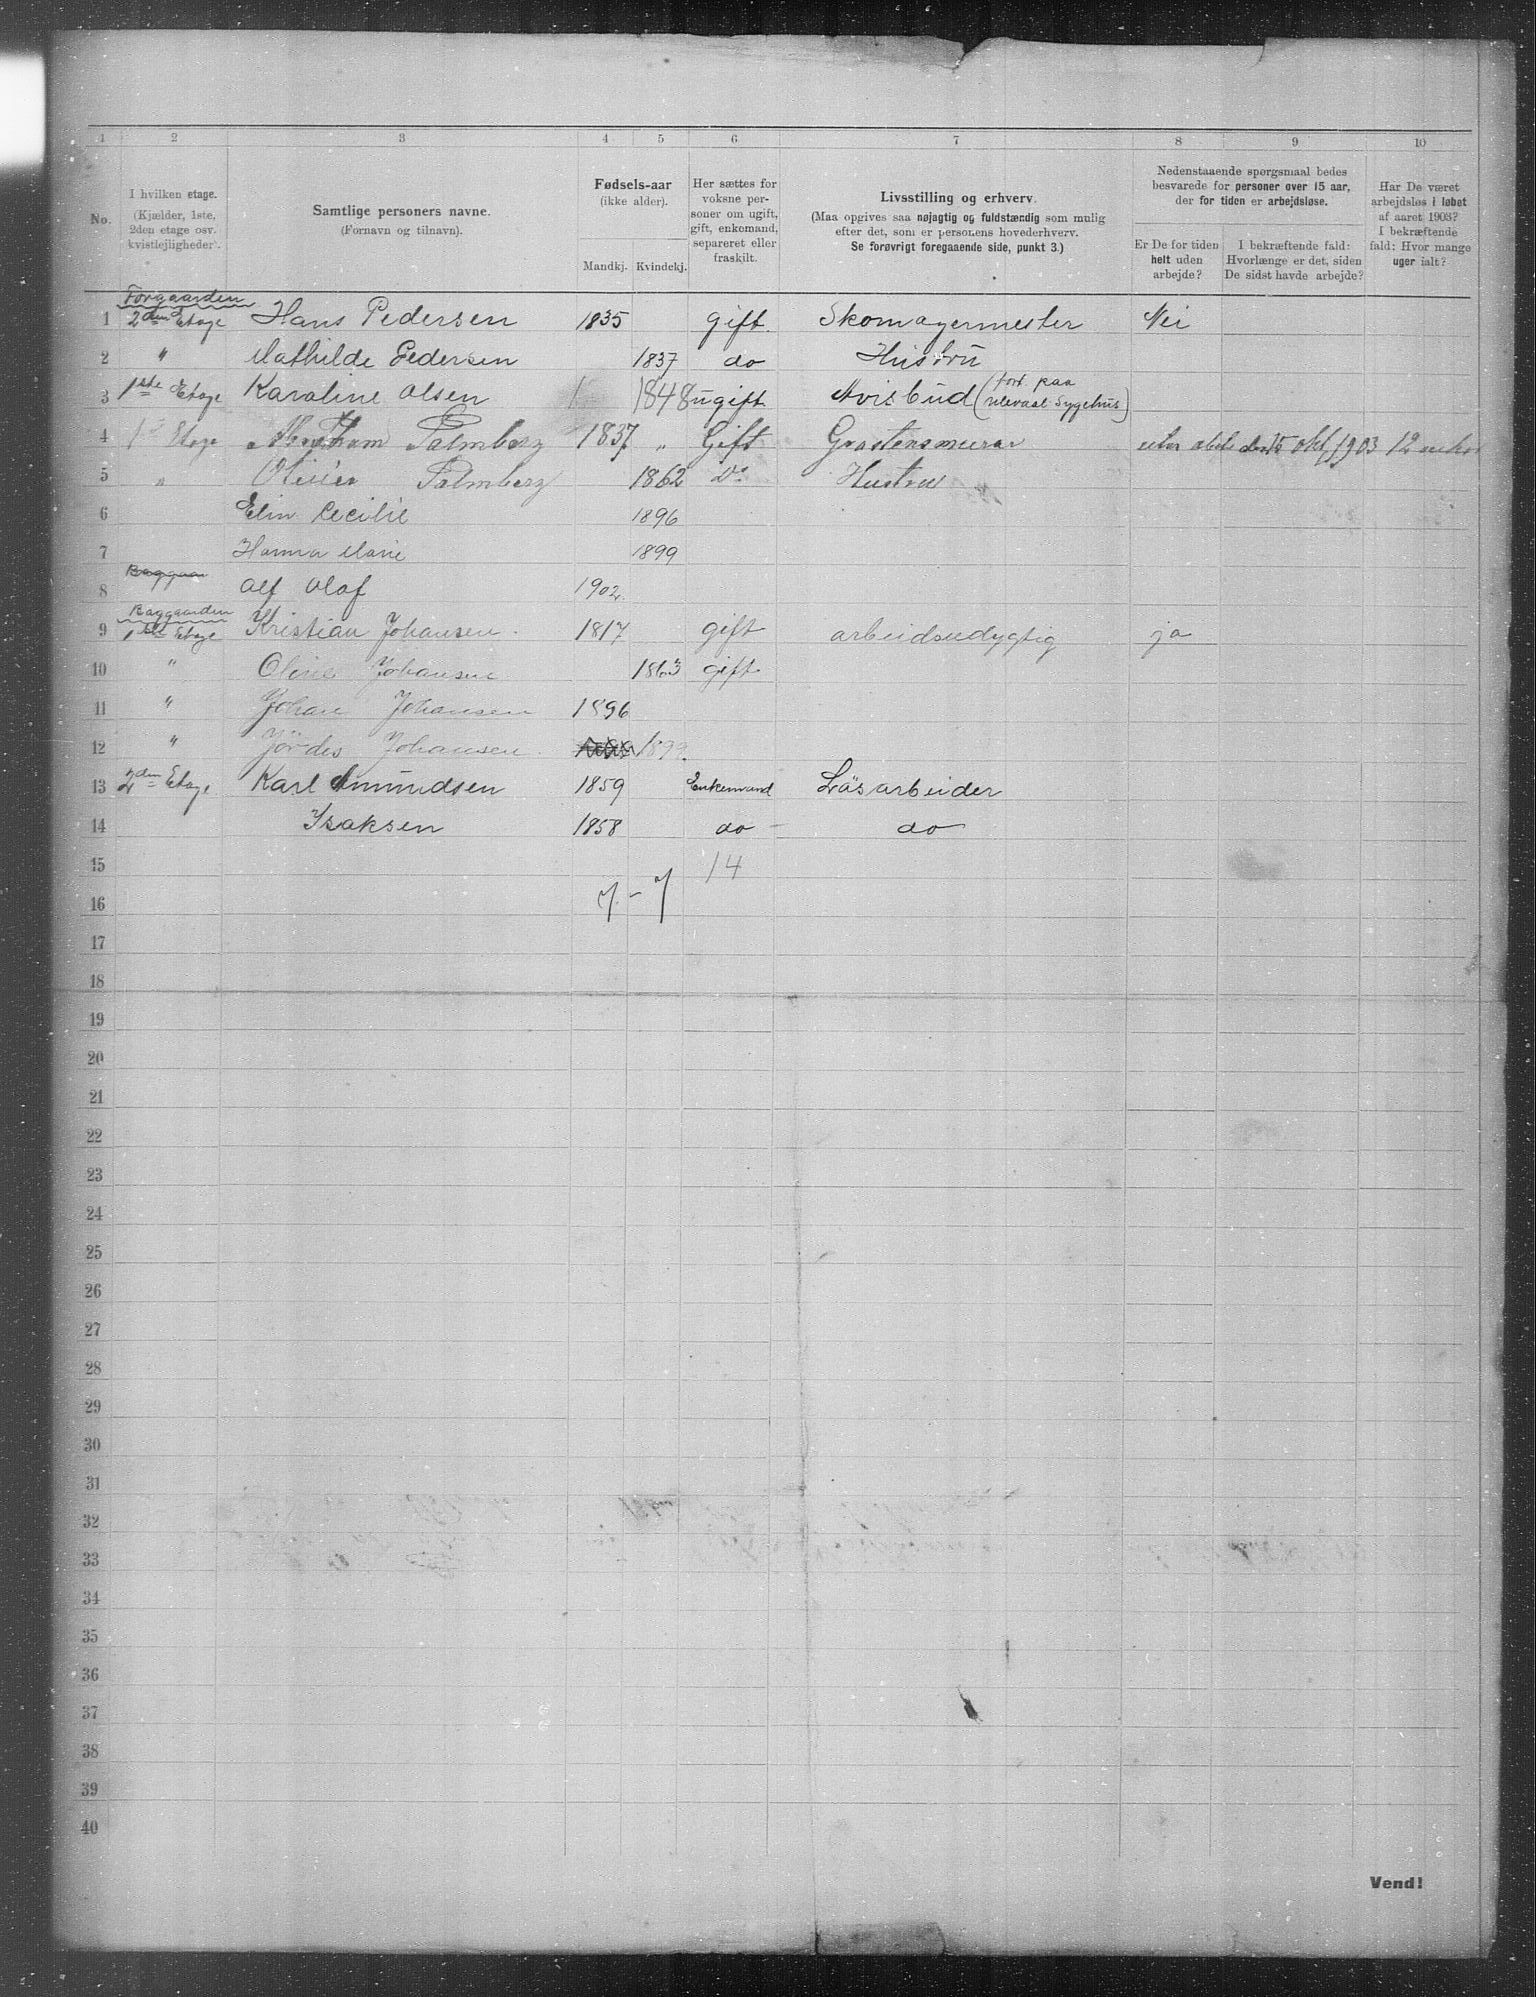 1 2 3 4 5 6 7 8 9 10
No.
I hvilken etage.
(Kjælder, 1ste,
2den etage osv.
kvistlejligheder).
Samtlige personers navne.
(Fornavn og tilnavn).
Fødsels-aar
(ikke alder).
Mandkj. Kvindekj.
Her sættes for
voksne per-
soner om ugift,
gift, enkemand,
separeret eller
fraskilt.
Livsstilling og erhverv.
(Maa opgives saa nøjagtig og fuldstændig som mulig
efter det, som er personens hovederhverv.
Se forøvrigt foregaaende side, punkt 3.)
Nedenstaaende spørgsmaal bedes
besvarede for personer over 15 aar,
der for tiden er arbejdsløse.
Er De for tiden
helt uden
arbejde?
I bekræftende fald:
Hvorlænge er det, siden
De sidst havde arbejde?
Har De været
arbejdsløs i løbet
af aaret 1903?
I bekræftende
fald: Hvor mange
uger ialt?
Forgaarden
1 2den Etage Hans Pedersen 1835 gift. Skomagermester Nei
2 " Mathilde Pedersen 1837 do Hustru
3 1ste Etage Karoline Olsen 1848 ugift Avisbud (fort. paa
Ulevaal Sygehus)
4 1ste Etage Abraham Palmberg 1837 " Gift 15 okt 1903 12
5 " Palmberg 1862 Do Hustru
6 Elin Cecilie 1896
7 Hanna Marie 1899
8 Alf Olaf 1902.
Baggaarden
9 1ste Etage Kristian Johansen. 1817 gift arbeidsudygtig ja
10 " Oline Johansen 1863 gift
11 " Johan Johansen 1896
12 " Jördis Johansen. 1899.
13 2den Etage Karl Amundsen 1859 Enkemand Lösarbeider
14 Isaksen 1858 do - do
15 14
16 7. - 7
17
18
19
20
21
22
23
24
25
26
27
28
29
30
31
32
33
34
35
36
37
38
39
40
Vend!